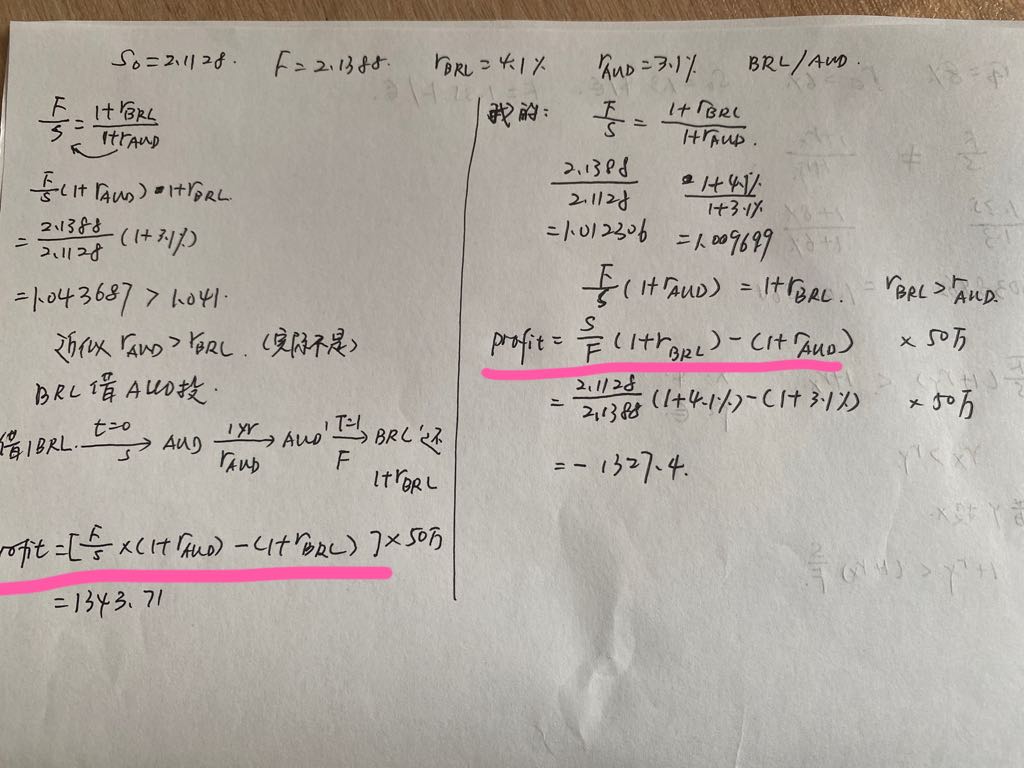 S₀=2.1128. F=2.1388. rBRL=4.1% rAUD=3.1% BRL/AUD.
F/S = 1+rBRL/1+rAUD
F/S(1+rAUD) = 1+rBRL.
= 2.1388/2.1128 (1+3.1%)
=1.043687 > 1.041.
近似 rAUD>rBRL. (实际不是)
BRL借 AUD投.
借1BRL. t=0 S → AUD 1yr rAUD → AUD' T=1 F → BRL' 还
1+rBRL
rofit=[F/S×(1+rAUD)-(1+rBRL)]×50万
=1343.71
我的: F/S = 1+rBRL/1+rAUD.
2.1388/2.1128 1+4.1%/1+3.1%
=1.012306 =1.009699
F/S(1+rAUD)=1+rBRL. rBRL>rAUD.
profit= S/F (1+rBRL)-(1+rAUD) ×50万
= 2.1128/2.1388 (1+4.1%)-(1+3.1%) ×50万
=-1327.4.